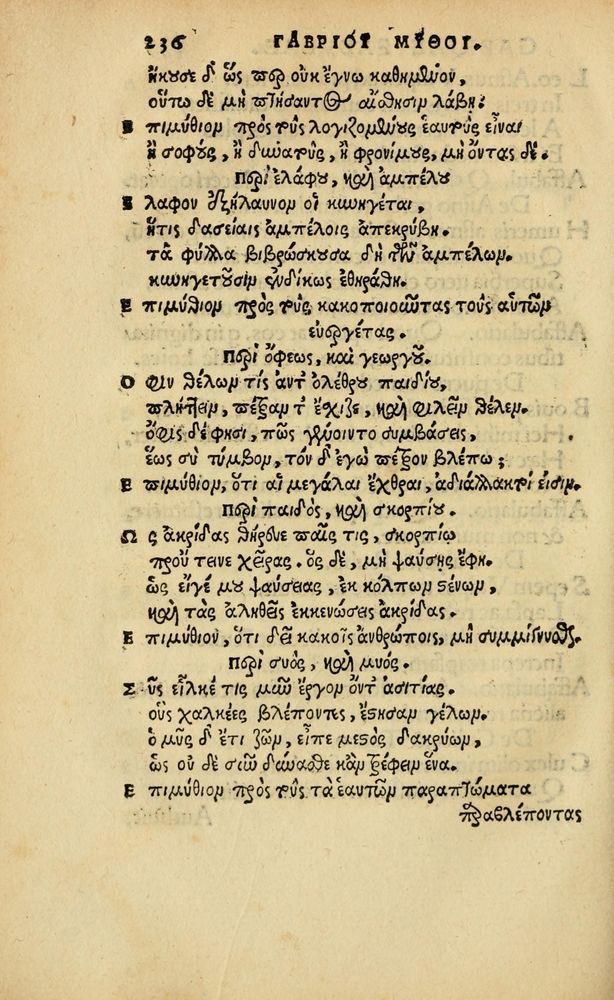 236 ΓΑΒΡΙΟΥ ΜΥΘΟΙ.
ἤκουσε δ' ὥς περ οὐκ ἔγνω καθημένον,
οὕτω δὲ μὴ πτήσαντος αἴσθησιν λάβῃ.
Ἐπιμύθιον πρὸς τοὺς λογιζομένους ἑαυτοὺς εἶναι
ἢ σοφούς, ἢ δυνατούς, ἢ φρονίμους, μὴ ὄντας δέ.
Περὶ ἐλάφου, καὶ ἀμπέλου
Ἔλαφον ἐξήλαυνον οἱ κυνηγέται,
ἥτις δασείαις ἀμπέλοις ἀπεκρύβη.
τὰ φύλλα βιβρώσκουσα δὴ τῶν ἀμπέλων.
κυνηγέτουσιν ἐνδίκως ἐθηράθη.
Ἐπιμύθιον πρὸς τοὺς κακοποιοῦντας τοὺς αὐτῶν
εὐεργέτας.
Περὶ ὄφεως, καὶ γεωργοῦ.
Ὄφιν θέλων τὶς ἀντ' ὀλέθρου παιδίου,
πλήττειν, πέτραν τ' ἔχιζε, καὶ φιλεῖν θέλεν.
ὄφις δέ φησι, πῶς γένοιντο συμβάσεις,
ἕως σὺ τύμβον, τόν δ' ἐγὼ πέτρον βλέπω;
Ἐπιμύθιον, ὅτι αἱ μεγάλαι ἔχθραι, ἀδιάλλακτοί εἰσιν.
Περὶ παιδός, καὶ σκορπίου.
Ὡς ἀκρίδας θήρευε παῖς τις, σκορπίῳ
προὔτεινε χεῖρας. ὃς δέ, μὴ ψαύσῃς ἔφη.
ὡς εἴγέ μου ψαύσειας, ἐκ κόλπων στένων,
καὶ τὰς ἀληθεῖς ἐκκενώσεις ἀκρίδας.
Ἐπιμύθιον, ὅτι δεῖ κακοῖς ἀνθρώποις, μὴ συμμίγνυσθαι.
Περὶ συός, καὶ μυός.
Σῦς εἷλκέ τις μῦν ἔργον ὄντ' ἀσιτίας.
οὓς χαλκέες βλέποντες, ἔστησαν γέλων.
ὁ μῦς δ' ἔτι ζῶν, εἶπε μεστὸς δακρύων,
ὡς οὐδὲ σῦν δύνασθε κἂν τρέφειν ἕνα.
Ἐπιμύθιον πρὸς τοὺς τὰ ἑαυτῶν παραπτώματα
παραβλέποντας